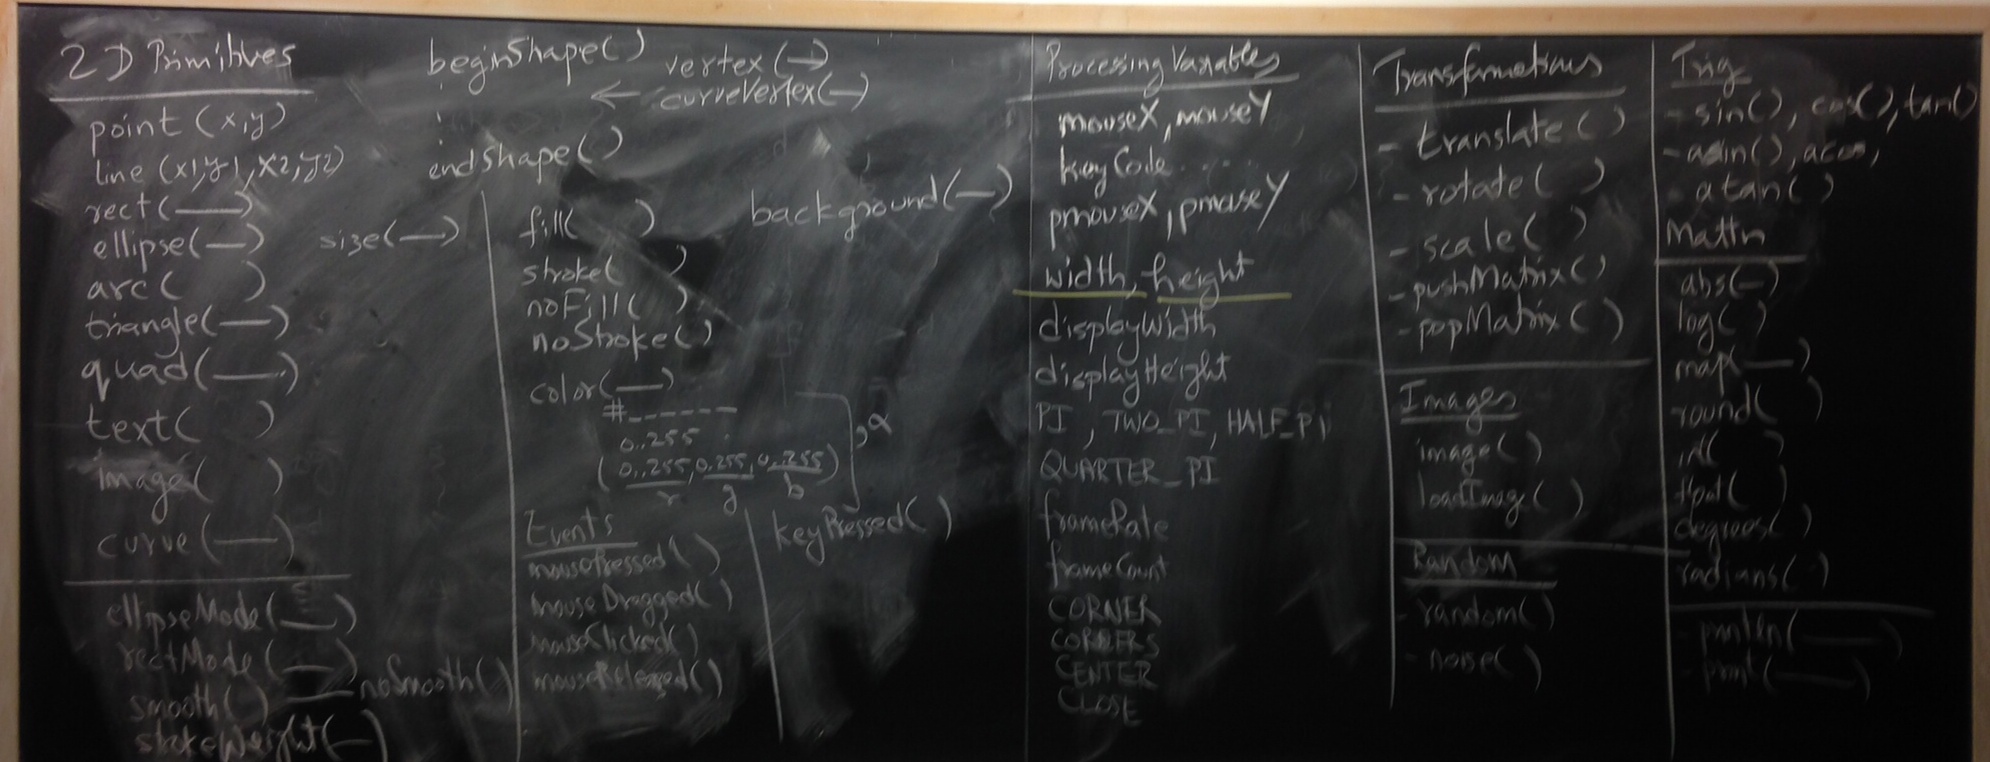 2D Primitives
point (x,y)
line (x1,y1,x2,y2)
rect(—)
ellipse(—)
arc( )
triangle(—)
quad(—)
text( )
image( )
curve(—)
ellipseMode(—)
rectMode(—)
smooth() — noSmooth()
strokeWeight(—)
size(—)
beginShape()
vertex(—)
← curveVertex(—)
endShape()
background(—)
fill( )
stroke( )
noFill( )
noStroke()
color(—)
#------
0..255
(0..255,0..255,0..255)
r g b
,α
Events
mousePressed()
mouseDragged()
mouseClicked()
mouseReleased()
keyPressed()
Processing Variables
mouseX, mouseY
keyCode....
pmouseX, pmouseY
width, height
displayWidth
displayHeight
PI, TWO_PI, HALF_PI
QUARTER_PI
frameRate
frameCount
CORNER
CORNERS
CENTER
CLOSE
Transformations
- translate()
- rotate( )
- scale( )
- pushMatrix()
- popMatrix()
Images
image()
loadImag()
Random
- random()
- noise()
Trig
- sin(), cos(), tan()
- asin(), acos,
- atan()
Math
abs(—)
log( )
map(—)
round( )
int( )
float( )
degrees()
radians()
- println(—)
- print(—)